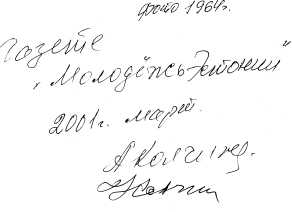 фото 1964г.
Газете
„Молодёжь Эстонии"
2001г. март.
А